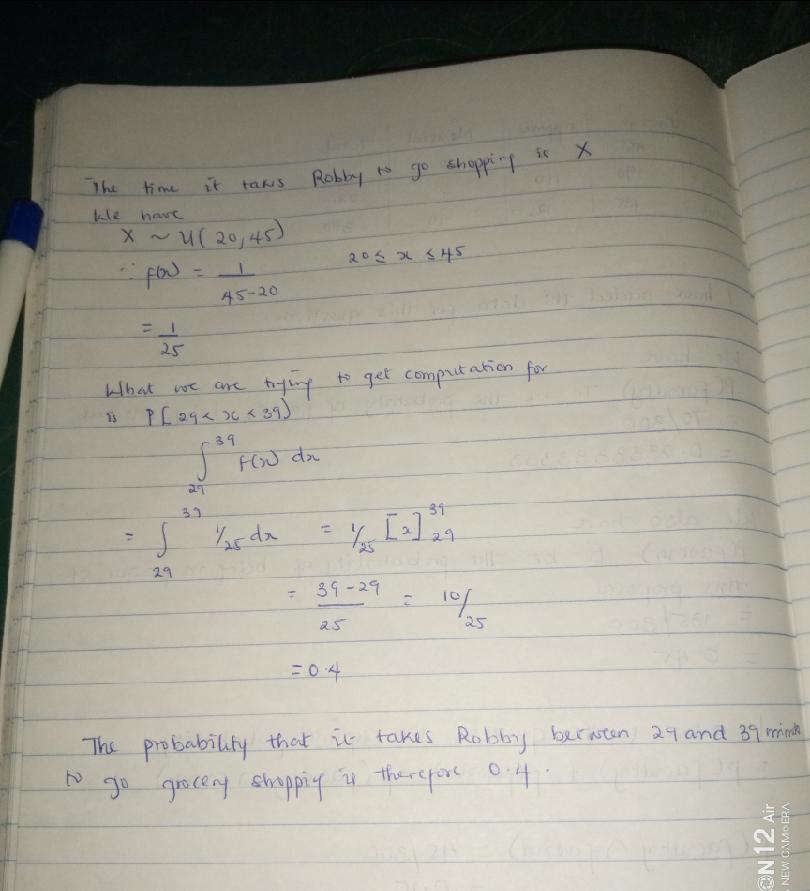 The time it takes Robby to go shopping is X
We have
X ~ U(20,45)
∴ f(x) = 1/45-20 20 ≤ x ≤ 45
= 1/25
What we are trying to get computation for
is P[29 < x < 39)
∫ 39 29 f(x) dx
= ∫ 39 29 1/25 dx = 1/25 [x] 39 29
= 39-29/25 = 10/25
= 0.4
The probability that it takes Robby between 29 and 39 minutes
to go grocery shopping is therefore 0.4.
N12 Air
NEW CAMERA ERA